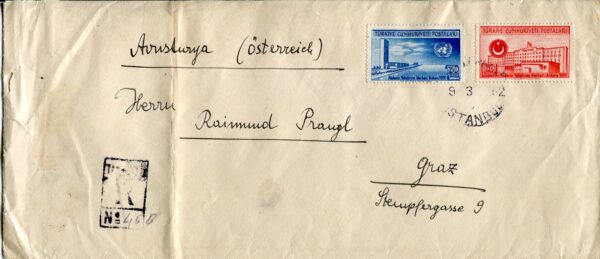 TÜRKİYE CUMHURİYETİ POSTALARI
TÜRKİYE CUMHURİYETİ POSTALARI
Avusturya (Österreich)
9 3
İSTANBUL
Herrn
Raimund Praugl
Graz
Stempfergasse 9
R
No